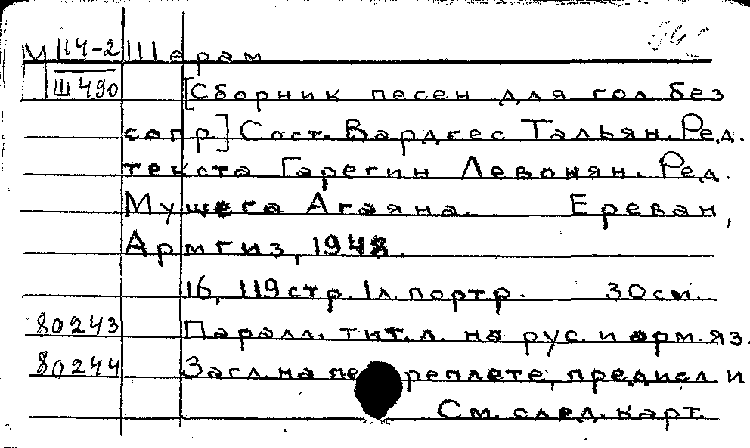 М П4-2 Шерам
Ш490 [Сборник песен для гол. без
сопр.] Сост. Вардгес Тальян. Ред.
текста Гарегин Левонян. Ред.
Мушега Агаяна. Ереван,
Армгиз, 1948.
16, 119 стр. 1 л. портр. 30 см.
80243 Паралл. тит. л. на рус. и арм. яз.
80244 Загл. на переплете, предисл и
См. след. карт.